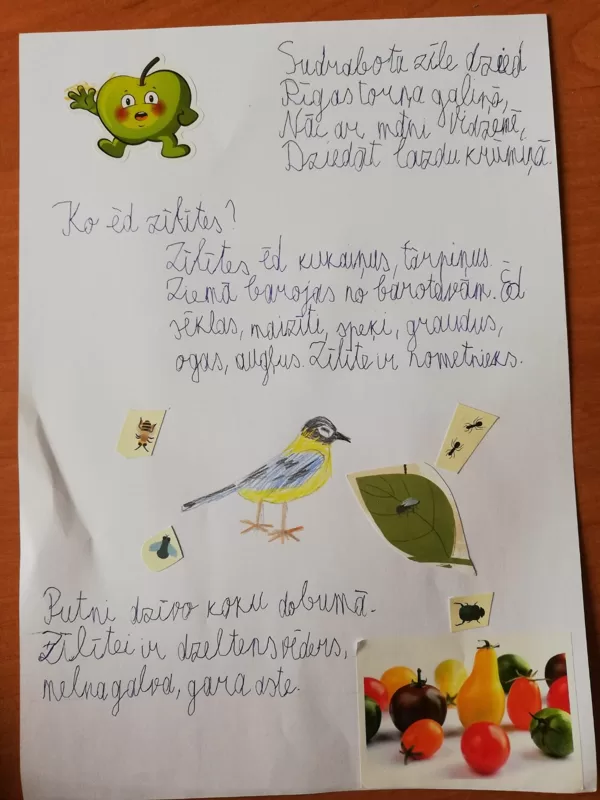 Sudrabota zīle dzied
Rīgas torņa galiņā,
Nāc ar mani Vidzēmē,
Dziedāt lazdu krūmiņā.
Ko ēd zīlītes?
Zīlītes ēd kukaiņus, tārpiņus.
Ziemā barojas no barotavām. Ēd
sēklas, maizīti, speķi, graudus,
ogas, augļus. Zīlīte ir nometnieks.
Putni dzīvo koku dobumā.
Zīlītei ir dzeltens vēders,
melna galva, gara aste.